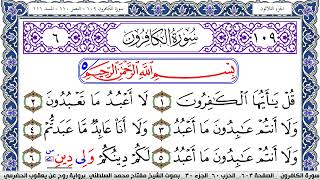 الجزء الثلاثون سورة الكافرون ١٠٩ - النصر ١١٠ - المسد ١١١
١٠٩ سُورَةُ الكَافِرُونَ ٦
بِسْمِ اللَّهِ الرَّحْمَنِ الرَّحِيمِ
قُلْ يَٰأَيُّهَا ٱلْكَٰفِرُونَ ١ لَا أَعْبُدُ مَا تَعْبُدُونَ ٢
وَلَا أَنتُمْ عَٰبِدُونَ مَا أَعْبُدُ ٣ وَلَا أَنَا۠ عَابِدٌ مَا عَبَدتُّمْ ٤
وَلَا أَنتُمْ عَٰبِدُونَ مَا أَعْبُدُ ٥ لَكُمْ دِينُكُمْ وَلِي دِينِ ٦
سورة الكافرون. الصفحة ٦٠٣. الحزب ٦٠. الجزء ٣٠. بصوت الشيخ مفتاح محمد السلطني. برواية روح عن يعقوب الحضرمي